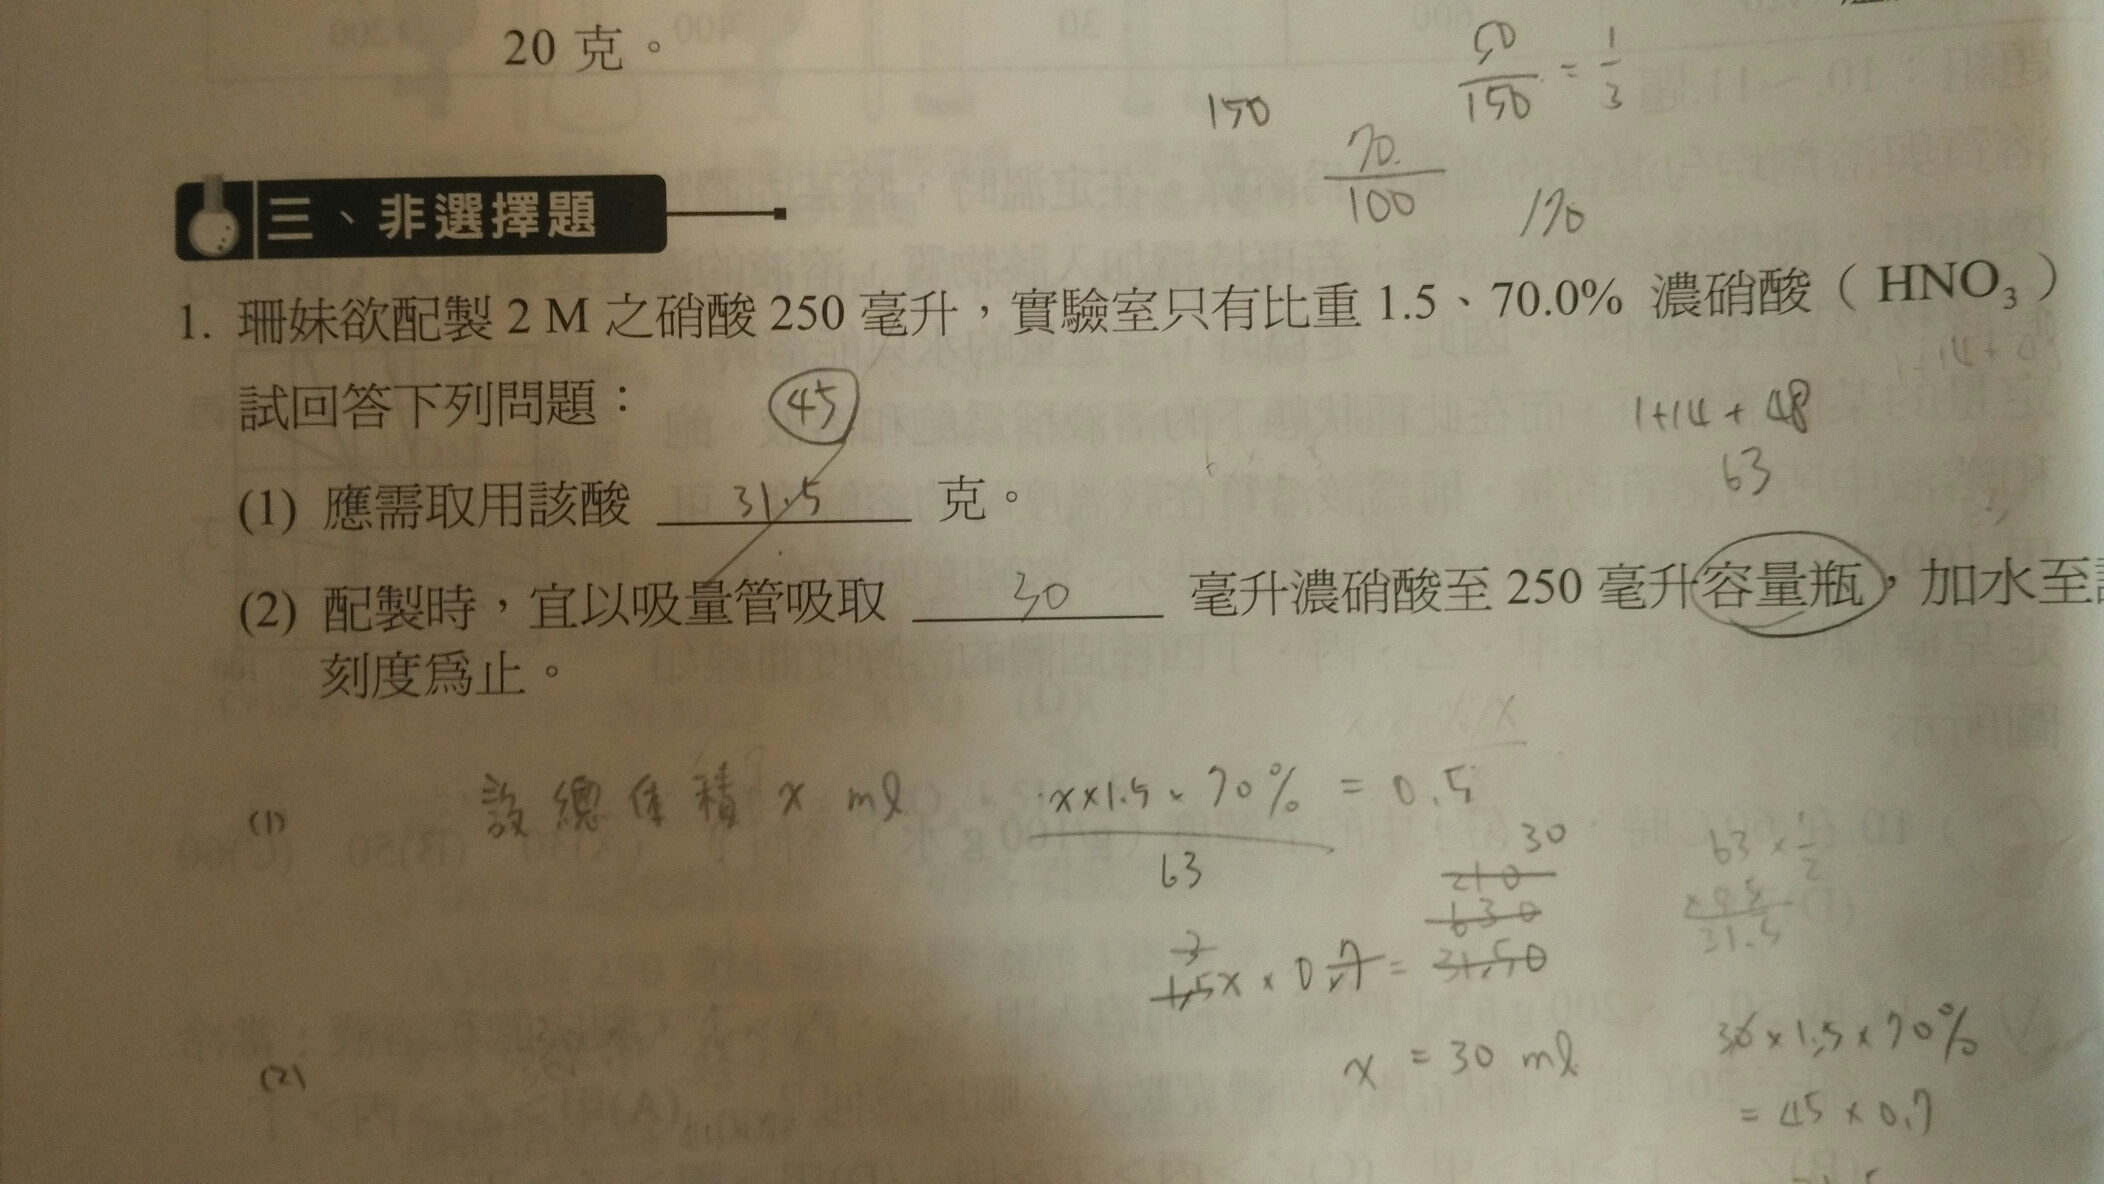 20 克。
50/150 = 1/3
150
70/100
170
三、非選擇題
1. 珊妹欲配製 2 M 之硝酸 250 毫升，實驗室只有比重 1.5、70.0% 濃硝酸（HNO₃）
試回答下列問題：
45
1+14+48
63
(1) 應需取用該酸 31.5 克。
(2) 配製時，宜以吸量管吸取 30 毫升濃硝酸至 250 毫升容量瓶，加水至
刻度為止。
(1) 設總体積 x ml
x×1.5×70% / 63 = 0.5
30
210
630
3
1.5x × 0.7 = 31.50
63 × 1/2
×0.5
31.5
x = 30 ml
30×1.5×70%
= 45×0.7
(2)